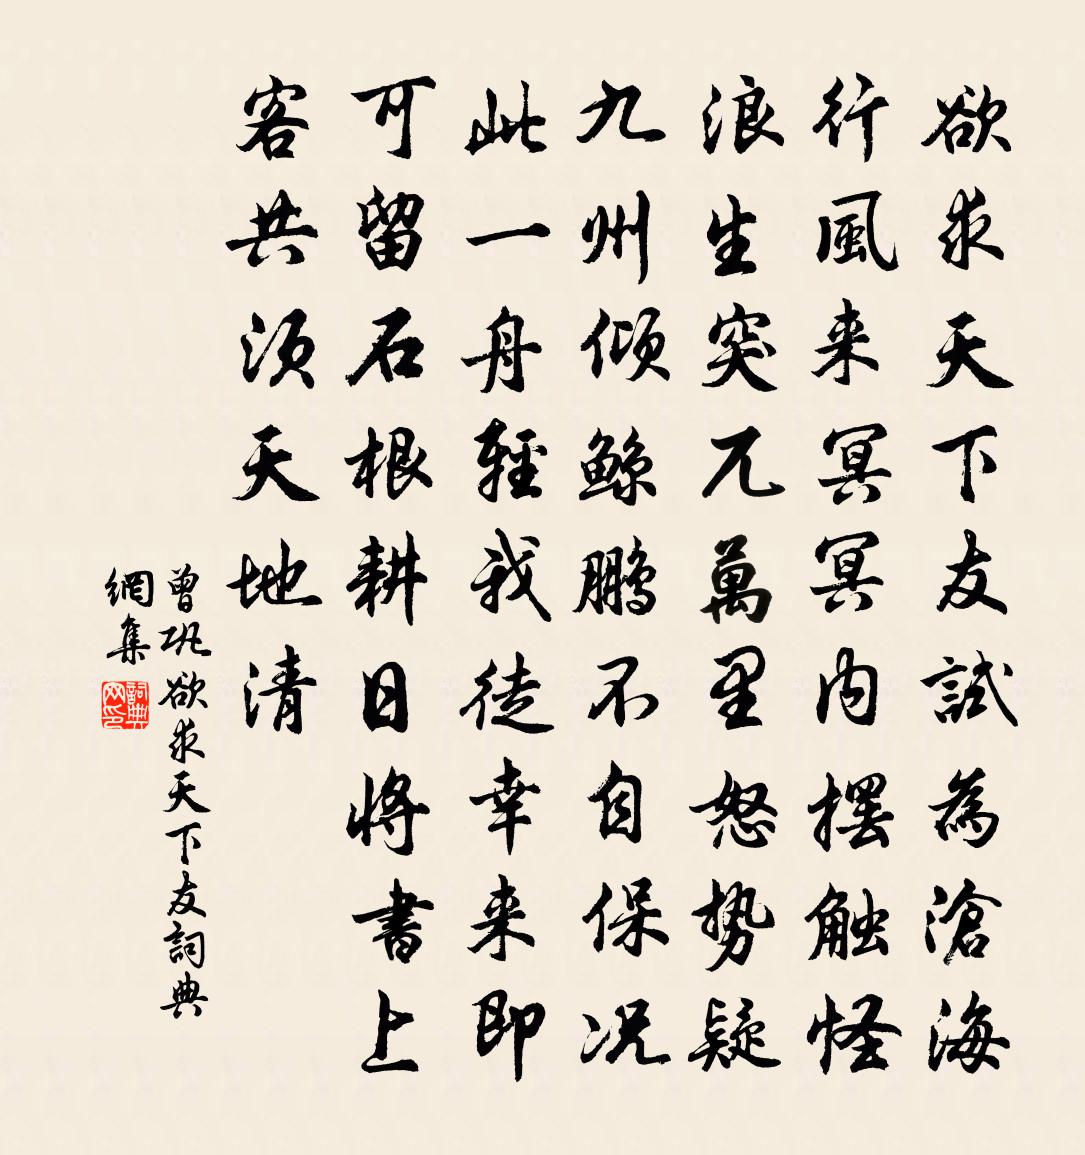 欲求天下友試為滄海
行風来冥冥内擺触怪
浪生突兀萬里怒勢疑
九州傾鯨鹏不自保况
此一舟輕我徒幸来即
可留石根耕日將書上
客共須天地清
曾巩欲求天下友詞典
網集
詞典网印